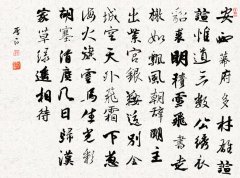 安西幕府多材雄諠
諠惟道三數公繡衣
貂裘明積雪飛書走
檄如飄風朝辭明主
出紫宮銀鞍送別金
城空天外飛霜下葱
海火旗雲馬生光彩
胡塞清塵幾日歸漢
家草綠遙相待